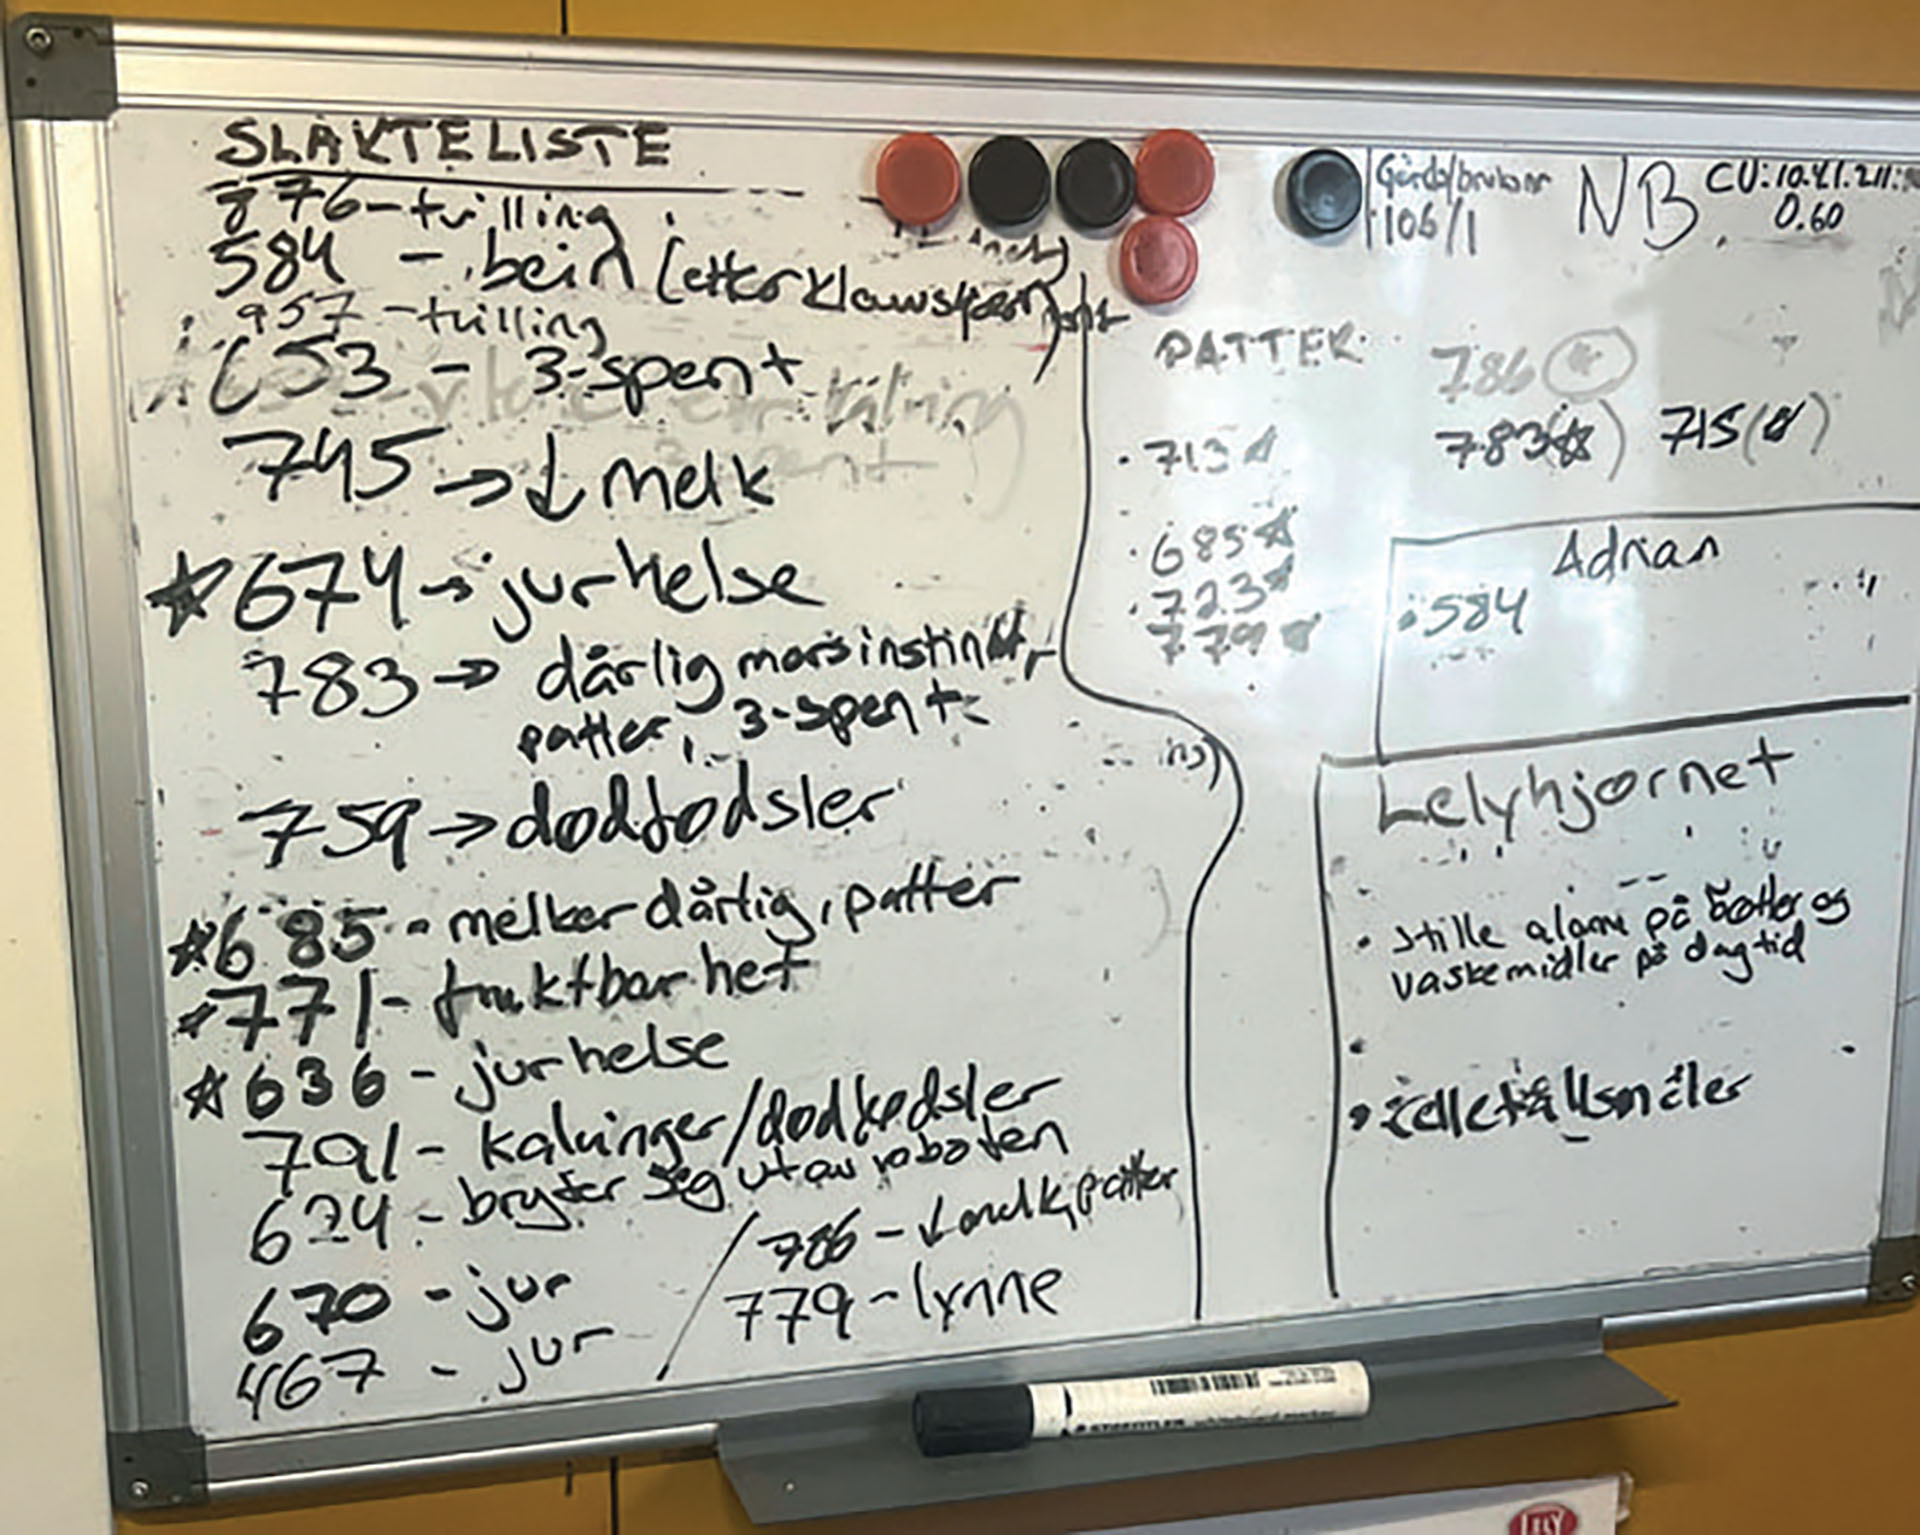 SLAKTELISTE
876 - tvilling
584 - bein (etter klawskjær)
957 - tvilling
653 - 3-spent
745 → ↓ melk
☆ 674 → jurhelse
783 → dårlig morsinstinkt,
patter, 3-spent
759 → dødfødsler
☆ 685 - melker dårlig, patter
☆ 771 - fruktbarhet
☆ 636 - jurhelse
791 - kalvinger/dødfødsler
624 - bryter seg ut av roboten
670 - jur
467 - jur
786 - ↓ melk, patter
779 - lynne
Gårds/bruksnr
106/1
NB
CU: 10.41.211:
0.60
PATTER:
786 (☆)
783 (☆) 715 (☆)
• 713 ☆
• 685 ☆
• 723 ☆
779 ☆
Adrian
• 584
Lelyhjørnet
• Stille alarm på bøtter og
vaskemidler på dagtid
• Celletallsmåler
STAEDTLER whiteboard marker
LELY